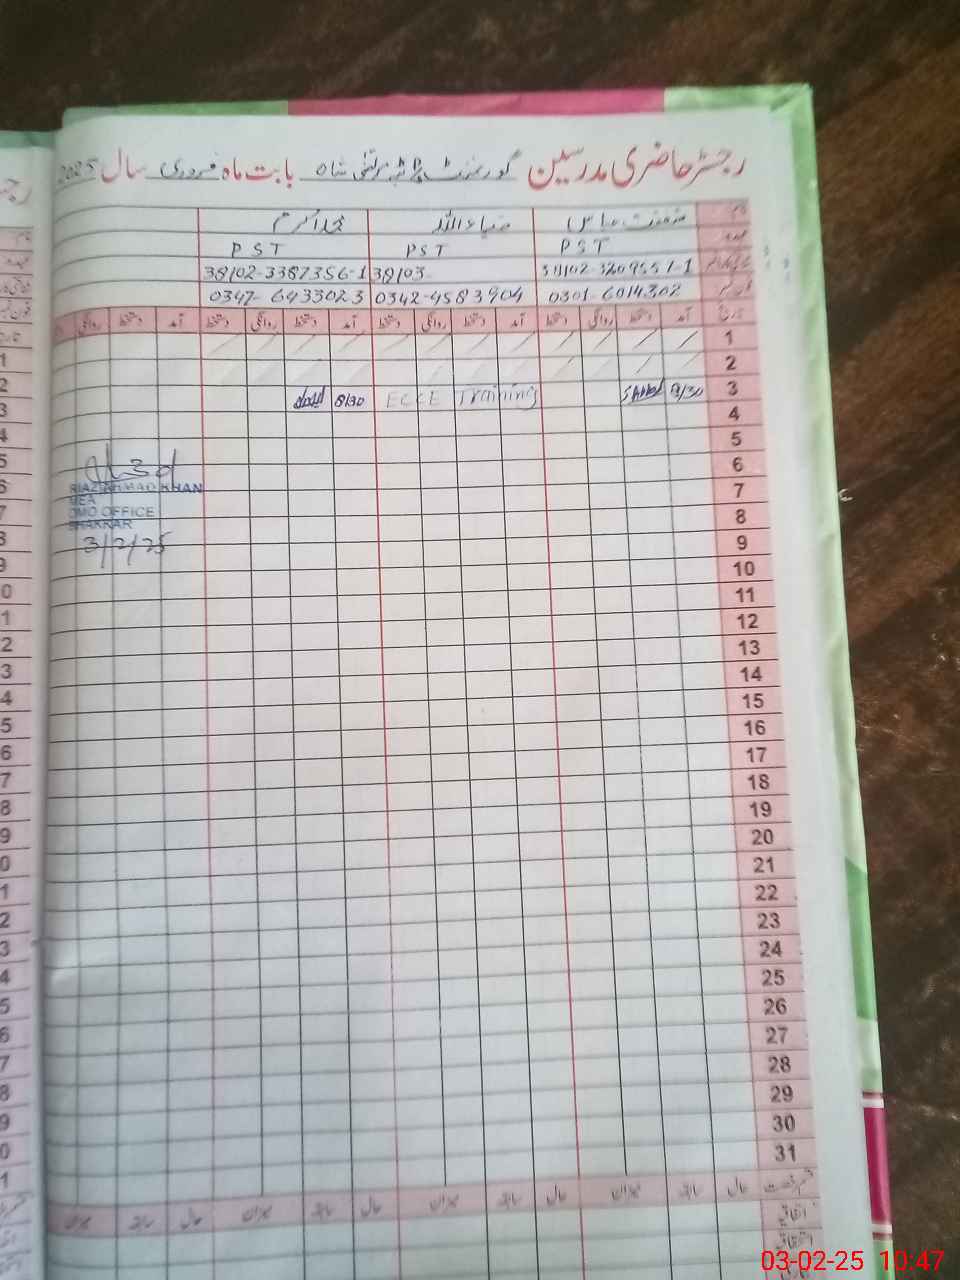 رجسٹر حاضری مدرسین گورنمنٹ مرتضیٰ شاہ بابت ماہ فروری سال 2025
نام عباس ضیاء اللہ محمد اکرم
عہدہ PST PST PST
38102-3209557-1 38103- 38102-3387356-1
0301-6014302 0342-4583904 0347-6933023
تاریخ آمد دستخط روانگی دستخط آمد دستخط روانگی دستخط آمد دستخط روانگی دستخط آمد روانگی
1
2
3 8/30 ECCE Training 8/30
4
5
6
7
8
9
10
11
12
13
14
15
16
17
18
19
20
21
22
23
24
25
26
27
28
29
30
31
RIAZ AHMAD KHAN
MEA
DMO OFFICE
BHAKKAR
3/2/25
حال سابقہ میزان حال سابقہ میزان حال سابقہ میزان
اتفاقیہ
03-02-25 10:47